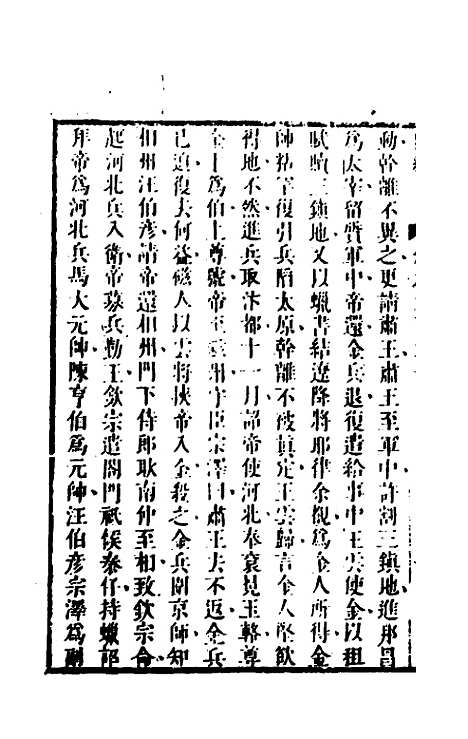 勒斡離不異之更請肅王肅王至軍中許割三鎮地進邦昌
爲太宰留質軍中帝還金兵退復遣給事中王雲使金以租
賦贖三鎮地又以蠟書結遼降將耶律余覩爲金人所得金
帥粘罕復引兵陷太原斡離不破眞定王雲歸言金人堅欲
得地不然進兵取汴都十一月詔帝使河北奉袞冕玉輅尊
金主爲伯上尊號帝至磁州守臣宗澤曰肅王去不返金兵
已迫復去何益磁人以雲將挾帝入金殺之金兵圍京師知
相州汪伯彥請帝還相州門下侍郎耿南仲至相致欽宗命
起河北兵入衛帝募兵勤王欽宗遣閤門祗候秦仔持蠟詔
拜帝爲河北兵馬大元帥陳亨伯爲元帥汪伯彥宗澤爲副